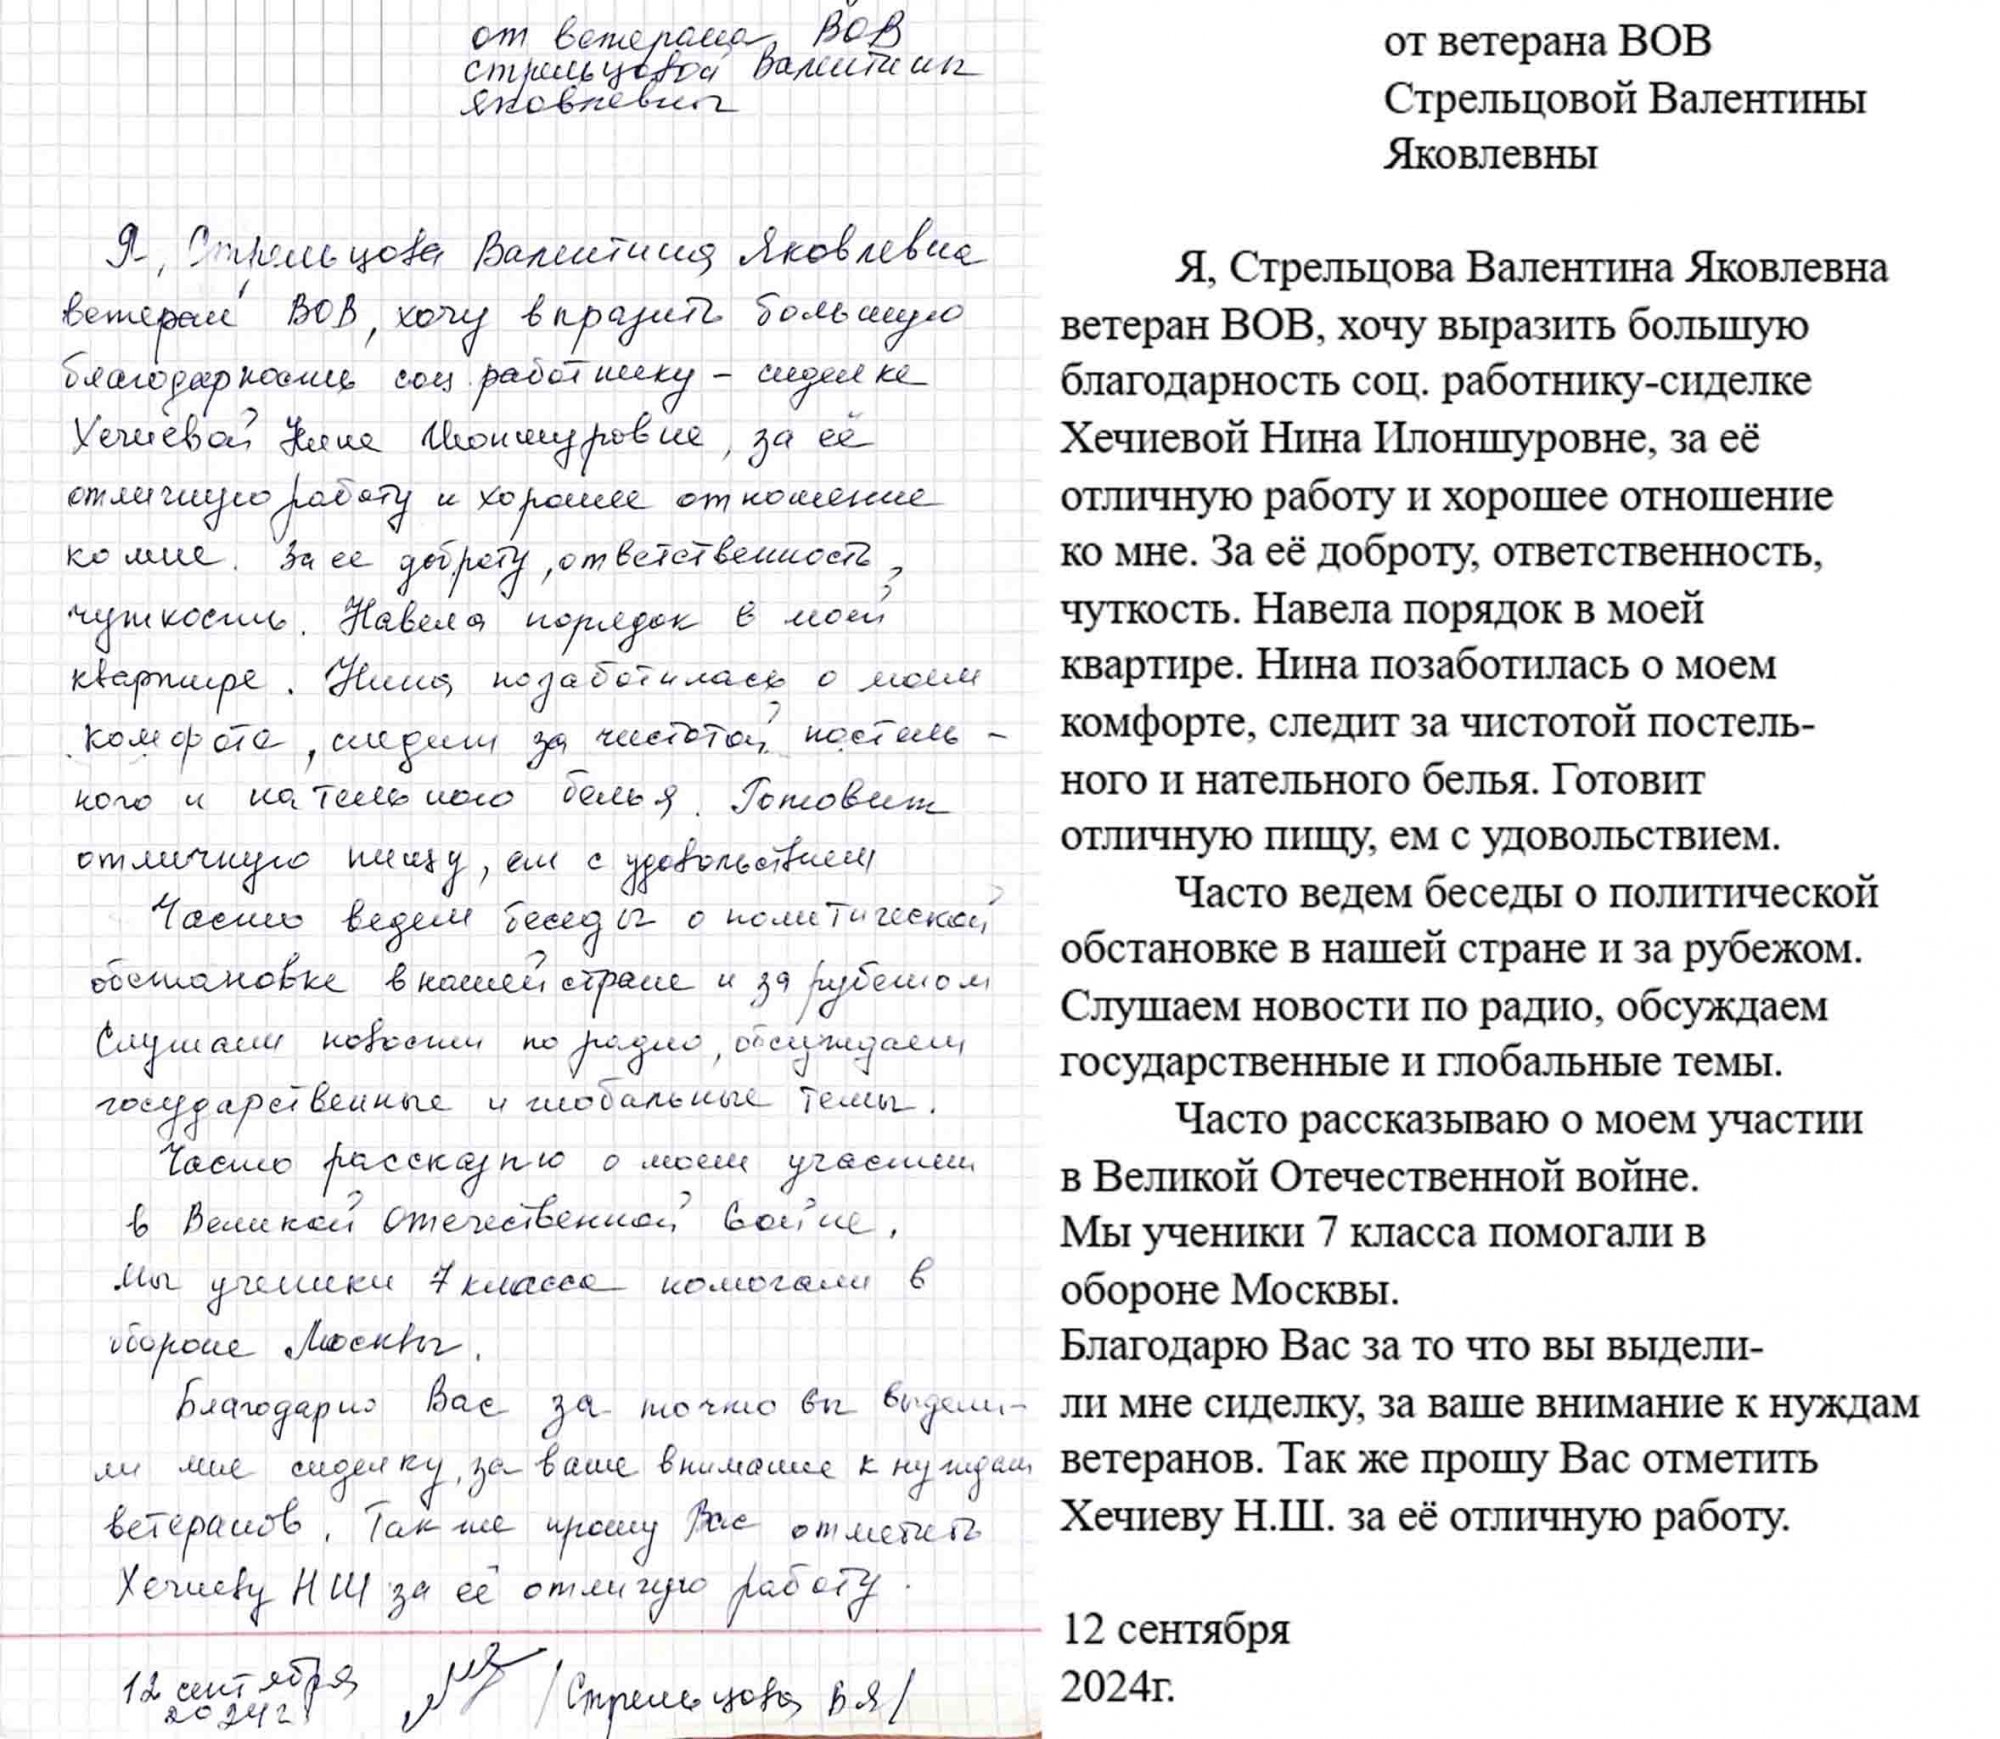 от ветерана ВОВ
Стрельцовой Валентины
Яковлевны
Я, Стрельцова Валентина Яковлевна
ветеран ВОВ, хочу выразить большую
благодарность соц. работнику – сиделке
Хечиевой Нине за её
отличную работу и хорошее отношение
ко мне. За ее доброту, ответственность,
чуткость. Навела порядок в моей
квартире. Нина позаботилась о моем
комфорте, следит за чистотой постель-
ного и нательного белья. Готовит
отличную пищу, ем с удовольствием
Часто ведем беседы о политической
обстановке в нашей стране и за рубежом
Слушаем новости по радио, обсуждаем
государственные и глобальные темы.
Часто рассказыю о моем участии
в Великой Отечественной войне.
Мы ученики 7 класса помогали в
обороне Москвы.
Благодарю Вас за то что вы выдели-
ли мне сиделку, за ваше внимание к нуждам
ветеранов. Так же прошу Вас отметить
Хечиеву Н Ш за её отличную работу.
12 сентября
2024г
/Стрельцова В Я/
от ветерана ВОВ
Стрельцовой Валентины
Яковлевны
Я, Стрельцова Валентина Яковлевна
ветеран ВОВ, хочу выразить большую
благодарность соц. работнику-сиделке
Хечиевой Нина Илоншуровне, за её
отличную работу и хорошее отношение
ко мне. За её доброту, ответственность,
чуткость. Навела порядок в моей
квартире. Нина позаботилась о моем
комфорте, следит за чистотой постель-
ного и нательного белья. Готовит
отличную пищу, ем с удовольствием.
Часто ведем беседы о политической
обстановке в нашей стране и за рубежом.
Слушаем новости по радио, обсуждаем
государственные и глобальные темы.
Часто рассказываю о моем участии
в Великой Отечественной войне.
Мы ученики 7 класса помогали в
обороне Москвы.
Благодарю Вас за то что вы выдели-
ли мне сиделку, за ваше внимание к нуждам
ветеранов. Так же прошу Вас отметить
Хечиеву Н.Ш. за её отличную работу.
12 сентября
2024г.